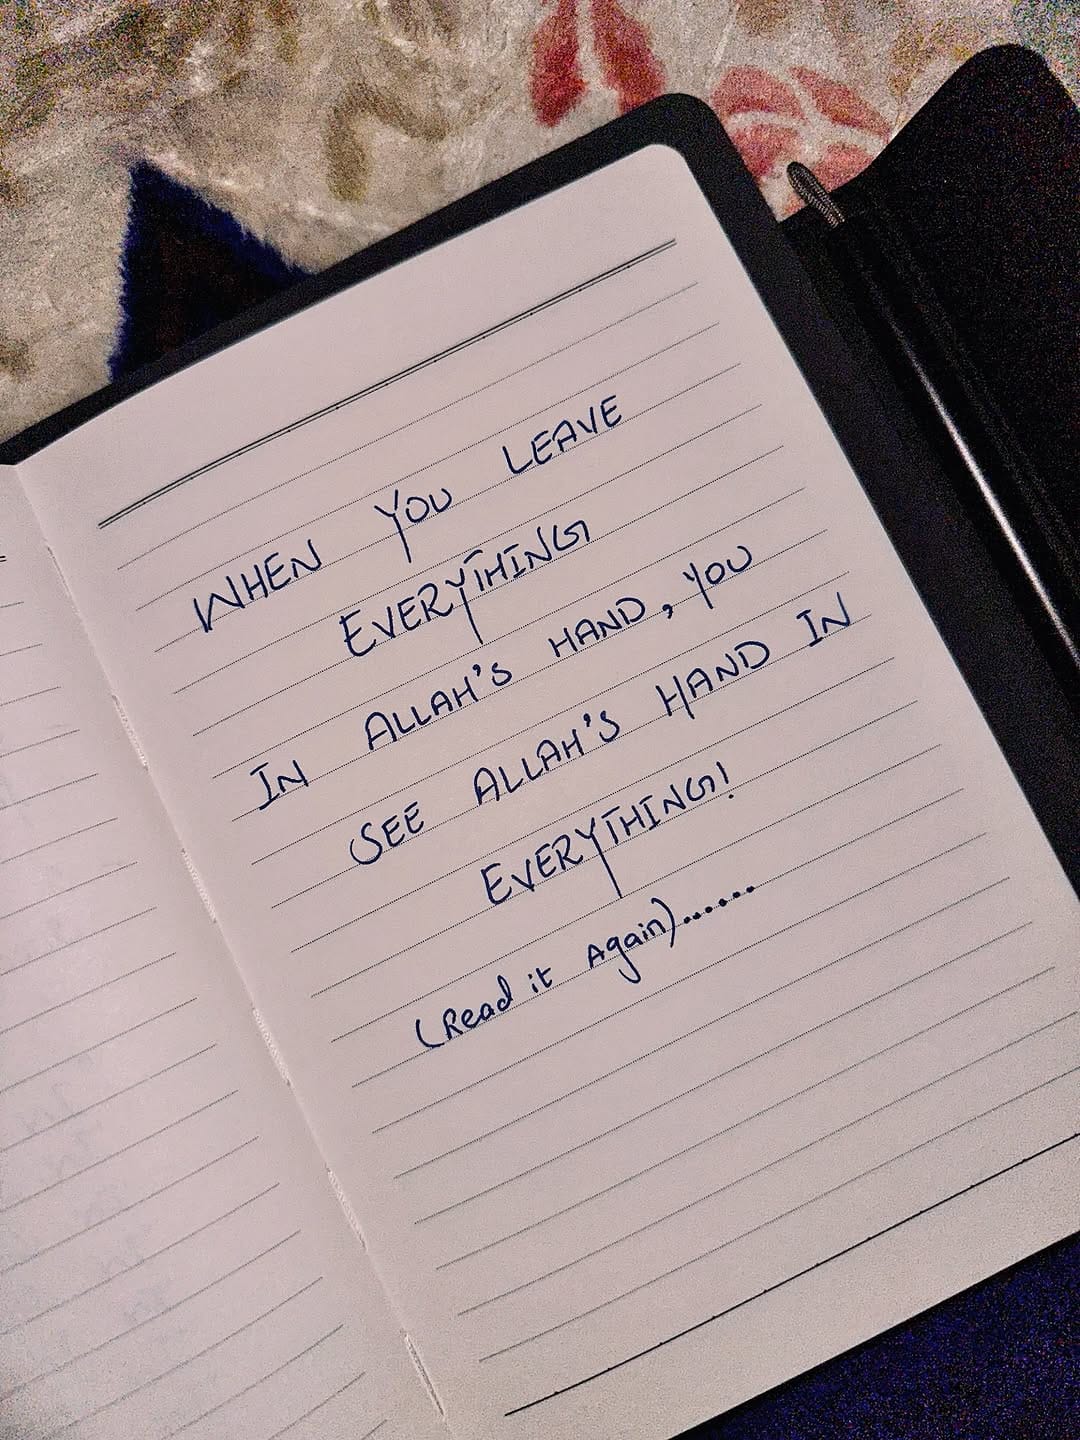 WHEN YOU LEAVE
EVERYTHING
IN ALLAH'S HAND, YOU
SEE ALLAH'S HAND IN
EVERYTHING!
(Read it Again)......